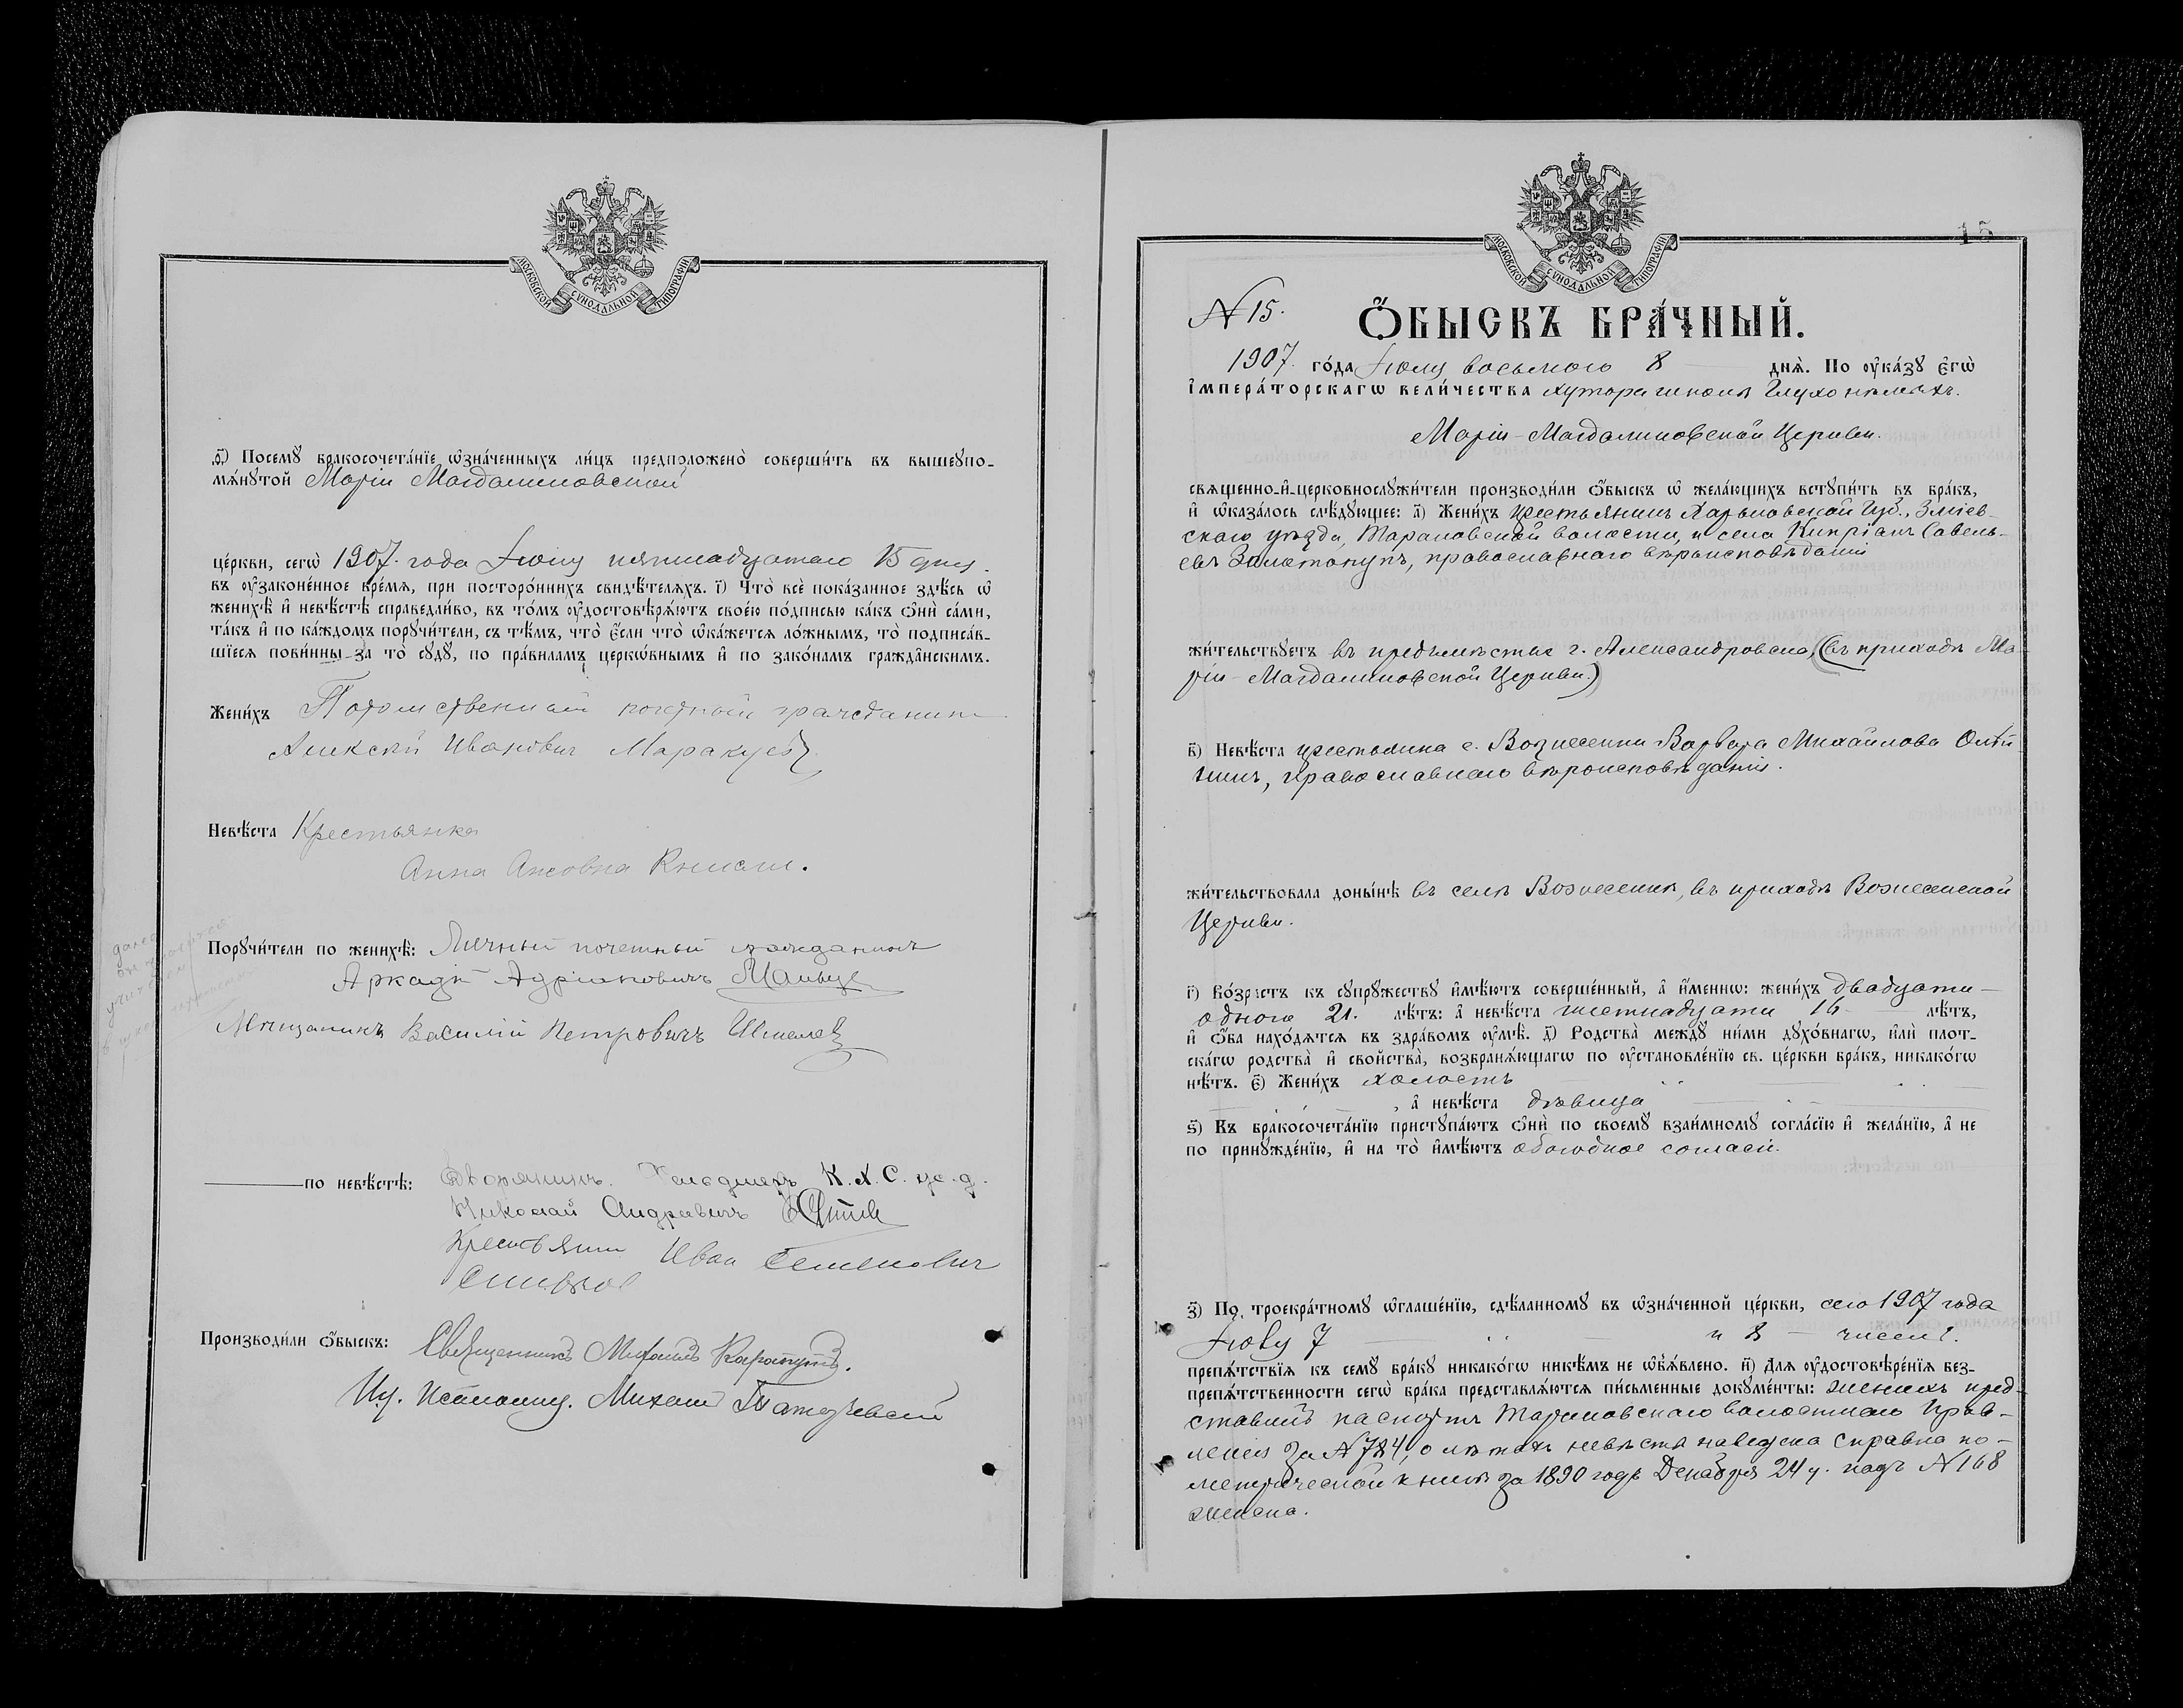 МОСКОВСКОЙ СУНОДАЛЬНОЙ ТИПОГРАФІИ
Ѳ҃) Посемꙋ бракосочета́нїе ѡ҆зна́ченныхъ ли́цъ предположено̀ соверши́ть въ вышеꙋпо-
мѧ́нꙋтой Маріи Магдалиновской
це́ркви, сегѡ̀ 1907. года Іюлу пятнадцатаго 15 дну.
въ ᲂу҆зако́ненное вре́мѧ, при посторо́ннихъ свидѣ́телѧхъ. і҃) Что̀ всѐ пока́занное здѣ́сь ѡ҆
женихѣ̀ и҆ невѣ́стѣ справедли́во, въ то́мъ ᲂу҆достовѣрѧ́ютъ свое́ю по́дписью ка́къ ѻ҆нѝ са́ми,
та́къ и҆ по ка́ждомъ порꙋчи́тели, съ тѣ́мъ, что̀ є҆́сли что̀ ѡ҆ка́жетсѧ ло́жнымъ, то̀ подписа́в-
шїесѧ пови́нны за то̀ сꙋдꙋ̀, по пра́виламъ церкѡ́внымъ и҆ по зако́намъ гражда̑нскимъ.
Жени́хъ Потомственный почетный гражданинъ
Алексѣй Ивановичъ Маракуевъ
Невѣ́ста Крестьянка
Анна
Порꙋчи́тели по женихѣ̀: Личный почетный гражданинъ
Аркадій Адріановичъ
Мѣщанинъ Василій Петровичъ Шмелев
по невѣ́стѣ: Дворянинъ. К. Х. С.
Николай Андреевичъ
Крестьянин Иван Семенович
Производи́ли ѻ҆́быскъ: Священникъ Михаилъ
Псаломщ. Михаил
МОСКОВСКОЙ СУНОДАЛЬНОЙ ТИПОГРАФІИ
15
N 15.
Ѻ҆́БЫСКЪ БРА́ЧНЫЙ.
1907. го́да Іюлу восьмого 8 днѧ̀. По ᲂу҆ка́зꙋ є҆гѡ̀
і҆мпера́торскагѡ вели́чества хутора школы Глухонѣмыхъ.
Маріи-Магдалиновской Церкви.
свѧщенно-и҆-церковнослꙋжи́тели производи́ли ѻ҆́быскъ ѡ҆ жела́ющихъ встꙋпи́ть въ бра́къ,
и҆ ѡ҆каза́лось слѣ́дꙋющее: а҃) Жени́хъ крестьянинъ Харьковской Губ., Зміев-
скаго уѣзда, Тарановской волости, и села Кипріанъ Савель-
евъ Золотопупъ, православнаго вѣроисповѣданія
жи́тельствꙋетъ въ предмѣстьѣ г. Александровска, (въ приходѣ Ма-
ріи-Магдалиновской Церкви.)
в҃) Невѣ́ста крестьянка с. Вознесенки Варвара Михайлова
православнаго вѣроисповѣданія.
жи́тельствовала доны́нѣ въ селѣ Вознесенкѣ, въ приходѣ Вознесенской
Церкви.
г҃) Во́зрастъ къ сꙋпрꙋжествꙋ и҆мѣ́ютъ соверше́нный, а҆ и҆́меннѡ: жени́хъ двадцати
одного 21. лѣ́тъ: а҆ невѣ́ста шестнадцати 16 лѣ́тъ,
и҆ ѻ҆́ба нахо́дѧтсѧ въ здра́вомъ ᲂу҆мѣ̀. д҃) Родства̀ междꙋ ни́ми дꙋхо́внагѡ, и҆лѝ плот-
ска́гѡ родства̀ и҆ свойства̀, возбранѧ́ющагѡ по ᲂу҆становле́нїю св. це́ркви бра́къ, никако́гѡ
нѣ́тъ. є҃) Жени́хъ холостъ
, а҆ невѣ́ста дѣвица
ѕ҃) Къ бракосочета́нїю пристꙋпа́ютъ ѻ҆нѝ по своемꙋ̀ взаи́мномꙋ согла́сїю и҆ жела́нїю, а҆ не
по принꙋжде́нїю, и҆ на то̀ и҆мѣ́ютъ обоюдное согласіе.
з҃) По троекра́тномꙋ ѡ҆глаше́нїю, сдѣ́ланномꙋ въ ѡ҆зна́ченной це́ркви, сего 1907 года
7 и 8 числе.
препѧ́тствїѧ къ семꙋ̀ бра́кꙋ никако́гѡ никѣ́мъ не ѡ҆б̾ѧ́влено. и҃) Длѧ ᲂу҆достовѣре́нїѧ без-
препѧ́тственности сегѡ̀ бра́ка представлѧ́ютсѧ пи́сьменные докꙋме́нты: женихъ пред-
ставилъ паспортъ Тарановскаго волостнаго Прав-
ленія за N 784, о лѣтахъ невѣсты наведена справка по-
метрической книгѣ за 1890 годъ Декабря 24 ч. подъ N 168
женска.